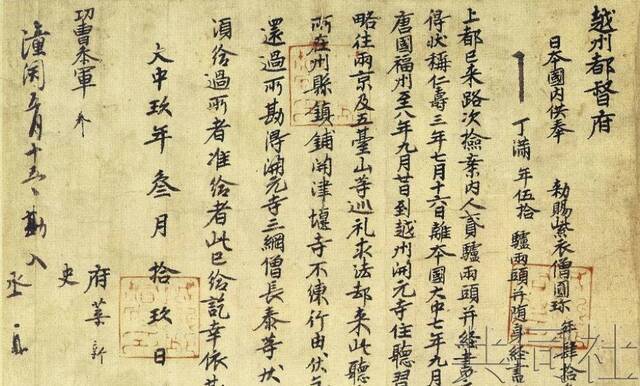 越州都督府
日本國内供奉 勅賜紫衣僧圓珍 年肆拾
丁滿 年伍拾 驢兩頭并随身經書
上都已来路次檢案内人貳驢兩頭并經書
得狀稱仁壽三年七月十六日離本國大中七年九月
唐國福州至八年九月廿日到越州開元寺住聽習
略往兩京及五臺山等巡礼求法却来此聽
所在州縣鎮鋪開津堰寺不練行由伏乞
還過所勘得開元寺三綱僧長泰等状
須給過所者准給者此已給訖幸依勘
大中玖年叁月拾玖日
府葉新
功曹參軍
史
潼関五月十五日勘入
丞
共同社